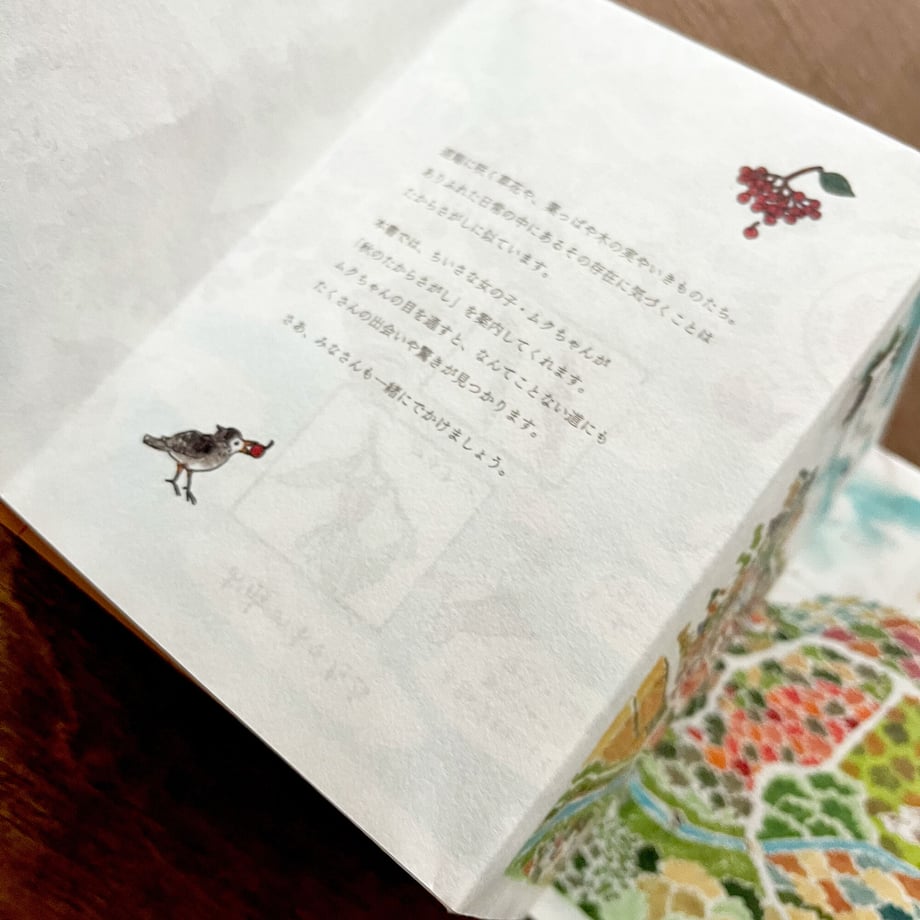 道端に咲く草花や、葉っぱや木の実やいきものたち。
ありふれた日常の中にあるその存在に気づくことは
たからさがしに似ています。
本書では、ちいさな女の子・ムクちゃんが
「秋のたからさがし」を案内してくれます。
ムクちゃんの目を通すと、なんてことない道にも
たくさんの出会いや驚きが見つかります。
さあ、みなさんも一緒にでかけましょう。